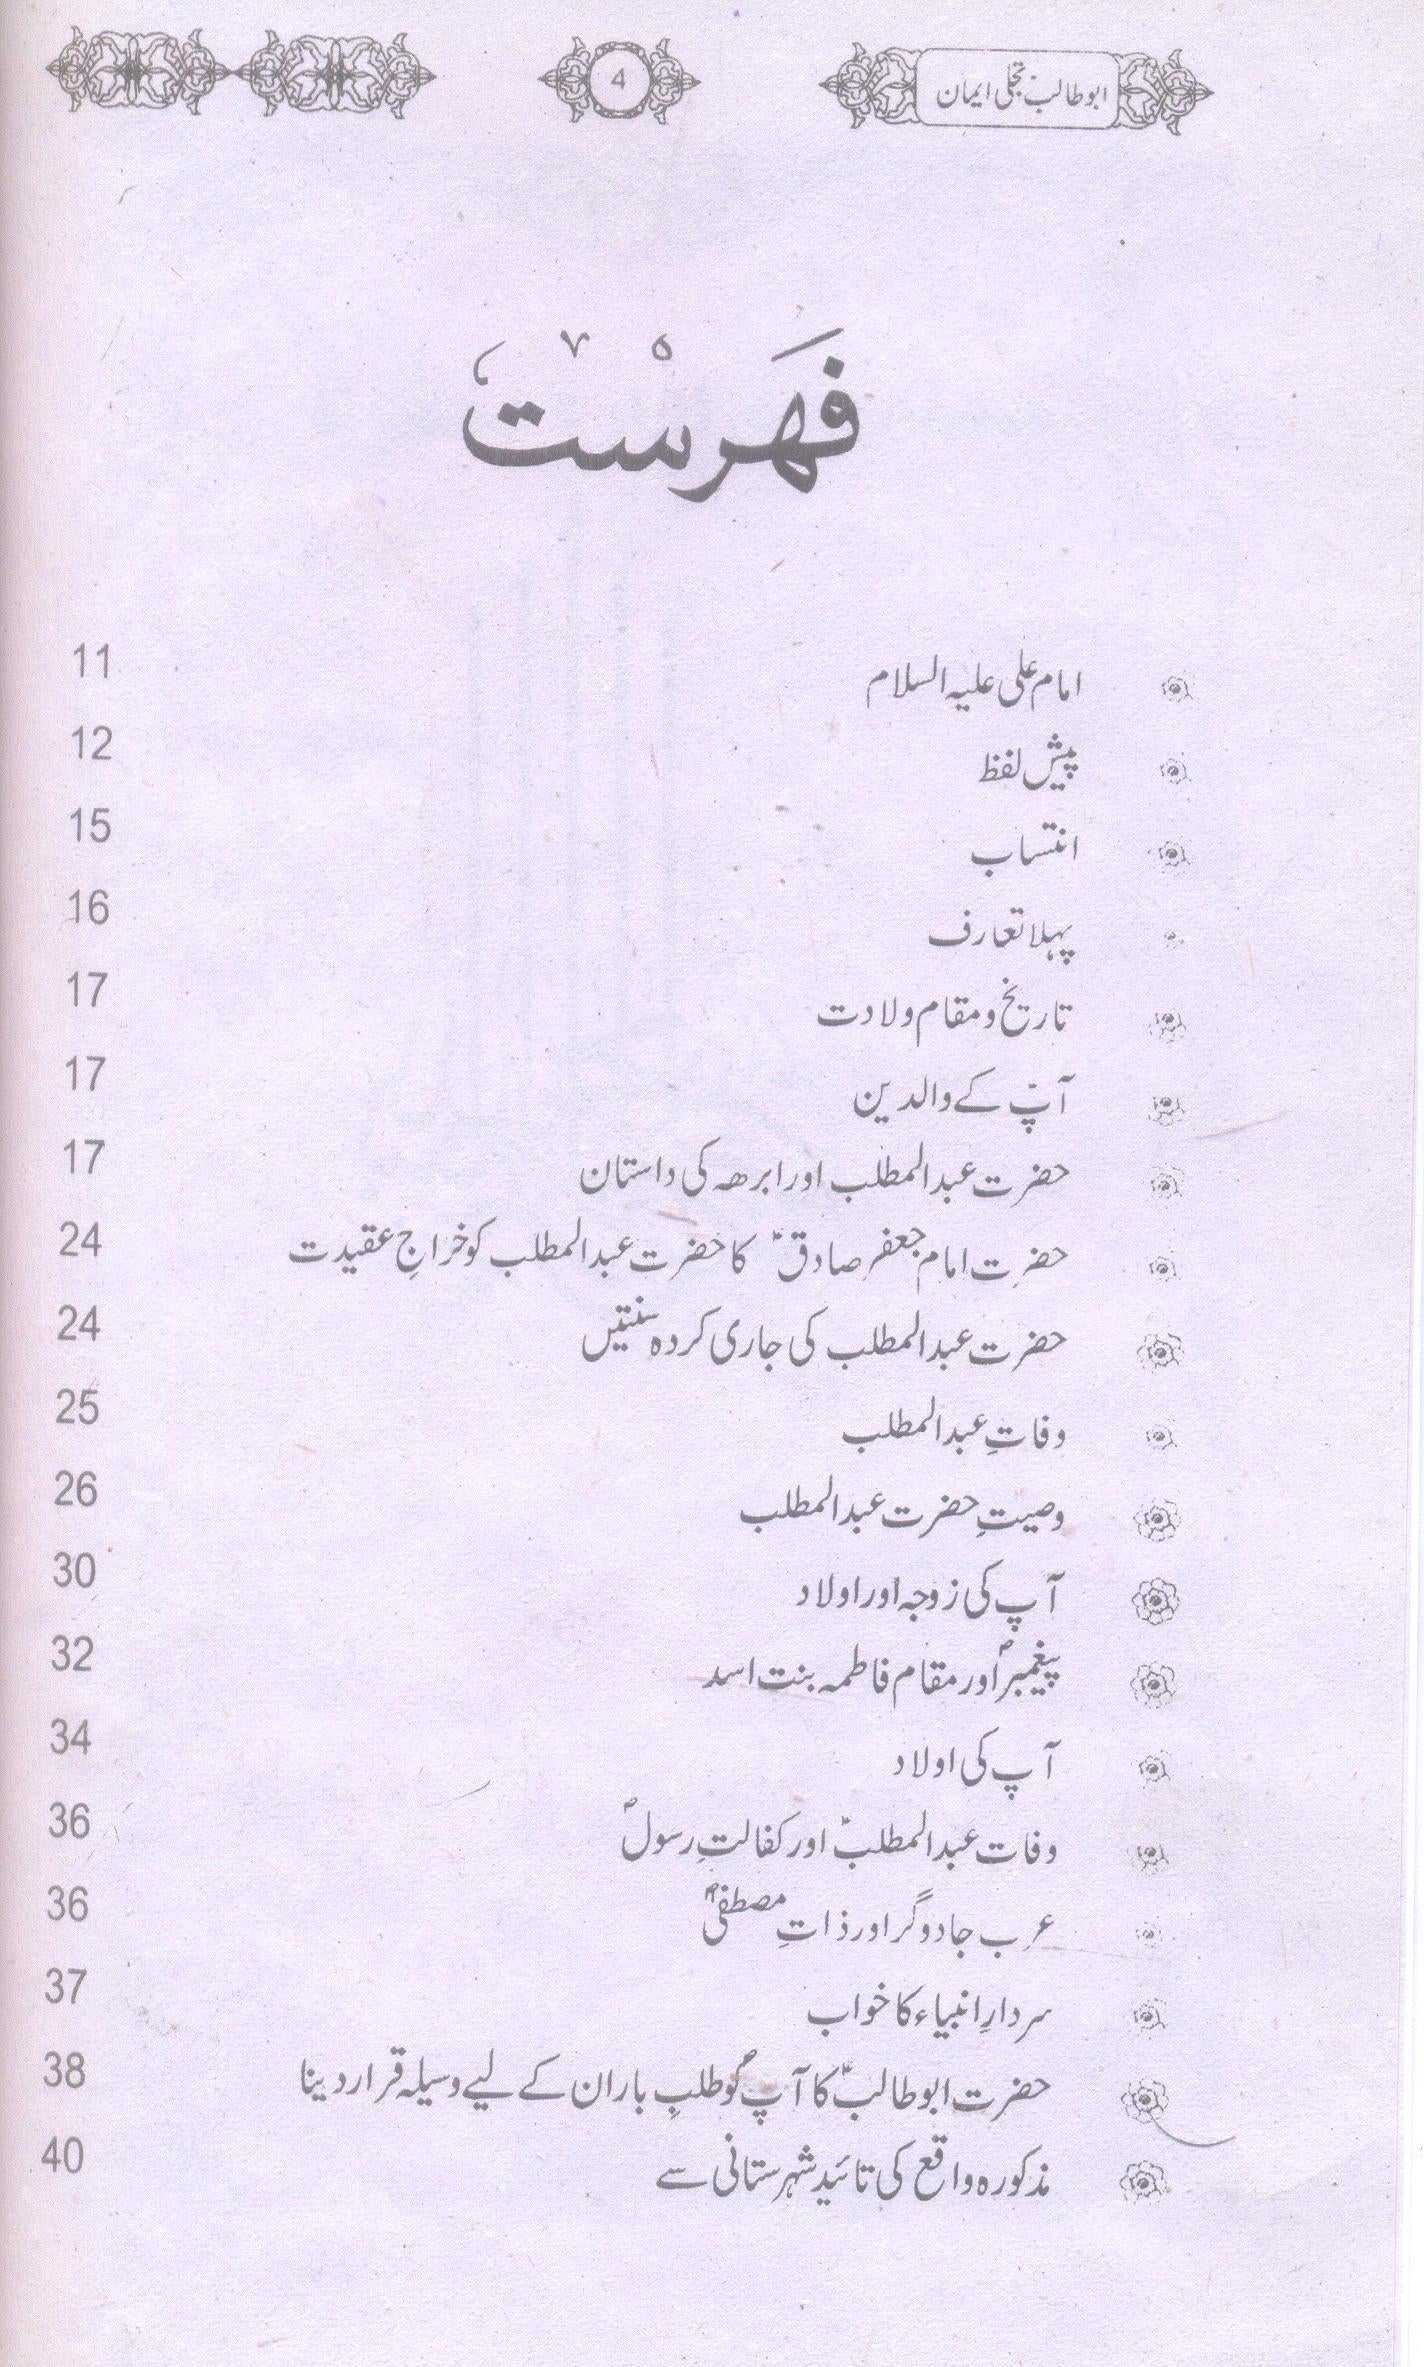 ابوطالب تجلی ایمان
4
فَهَرْسْت
امام علی علیہ السلام 11
پیش لفظ 12
انتساب 15
پہلا تعارف 16
تاریخ و مقام ولادت 17
آپؑ کے والدین 17
حضرت عبدالمطلب اور ابرھہ کی داستان 17
حضرت امام جعفر صادقؑ کا حضرت عبدالمطلب کو خراجِ عقیدت 24
حضرت عبدالمطلب کی جاری کردہ سنتیں 24
وفاتِ عبدالمطلب 25
وصیتِ حضرت عبدالمطلب 26
آپ کی زوجہ اور اولاد 30
پیغمبرؐ اور مقام فاطمہ بنت اسد 32
آپ کی اولاد 34
وفات عبدالمطلبؑ اور کفالتِ رسولؐ 36
عرب جادوگر اور ذاتِ مصطفیؐ 36
سردارِ انبیاء کا خواب 37
حضرت ابوطالبؑ کا آپؐ کو طلبِ باران کے لیے وسیلہ قرار دینا 38
مذکورہ واقع کی تائید شہرستانی سے 40